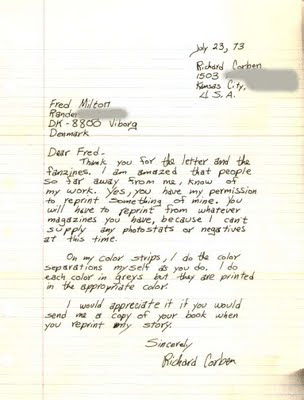 July 23, 73
Richard Corben
1503
Kansas City,
U.S.A.
Fred Milton
Rander
DK-8800 Viborg
Denmark
Dear Fred-
Thank you for the letter and the
fanzines. I am amazed that people
so far away from me, know of
my work. Yes, you have my permission
to reprint something of mine. You
will have to reprint from whatever
magazines you have, because I can't
supply any photostats or negatives
at this time.
On my color strips, I do the color
separations myself as you do. I do
each color in greys but they are printed
in the appropriate color.
I would appreciate it if you would
send me a copy of your book when
you reprint my story.
Sincerely
Richard Corben